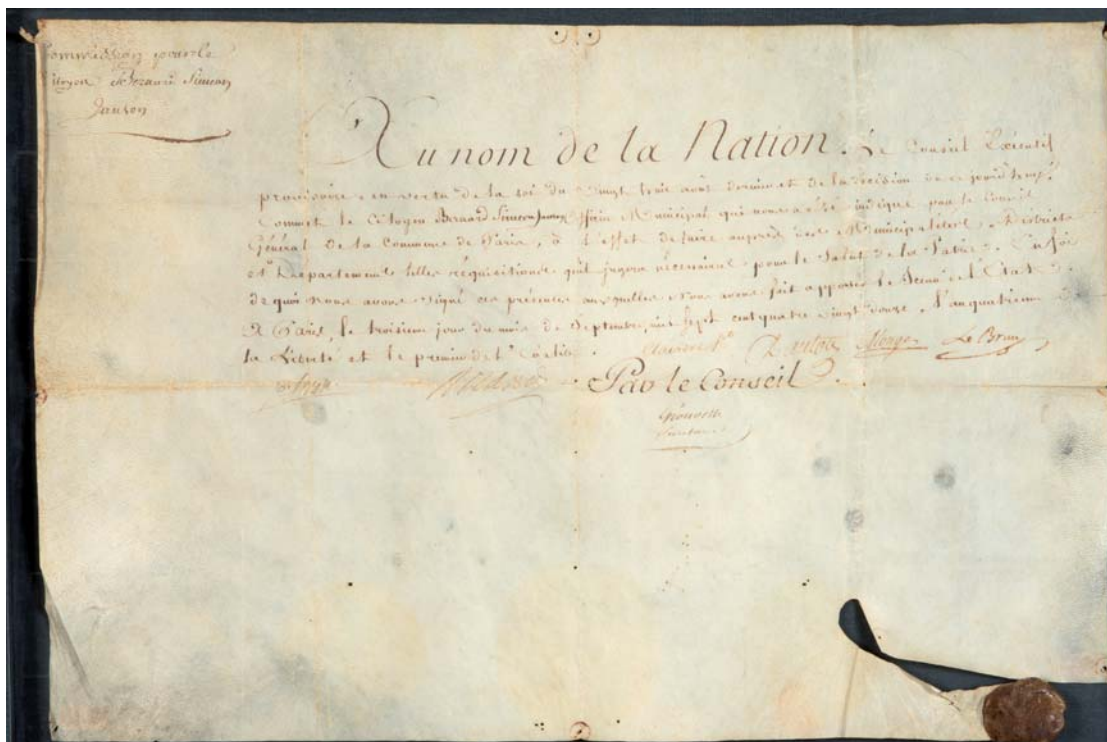 Commission pour le
Citoyen Bernard Simeon
Janson
Au nom de la Nation. Le Conseil Executif
provisoire, en vertu de la loi du vingt trois août dernier et de la décision de ce jourd'hui,
Commet le Citoyen Bernard Simeon Municipal qui nous a été indiqué par le Conseil
Général de la Commune de Paris, à l'effet de faire auprès des Municipalités, Districts
et Départements telles réquisitions qu'il jugera nécessaires pour le Salut de la Patrie. En foi
de quoi nous avons signé ces présentes auxquelles nous avons fait apposer le Sceau de l'Etat.
A Paris, le troisieme jour du mois de Septembre, mil sept cent quatre vingt douze, l'an quatrieme de
la Liberté et le premier de l'Egalité. Claviere Danton Monge Le Brun
Servan Roland Par le Conseil
Grouvelle
Secretaire